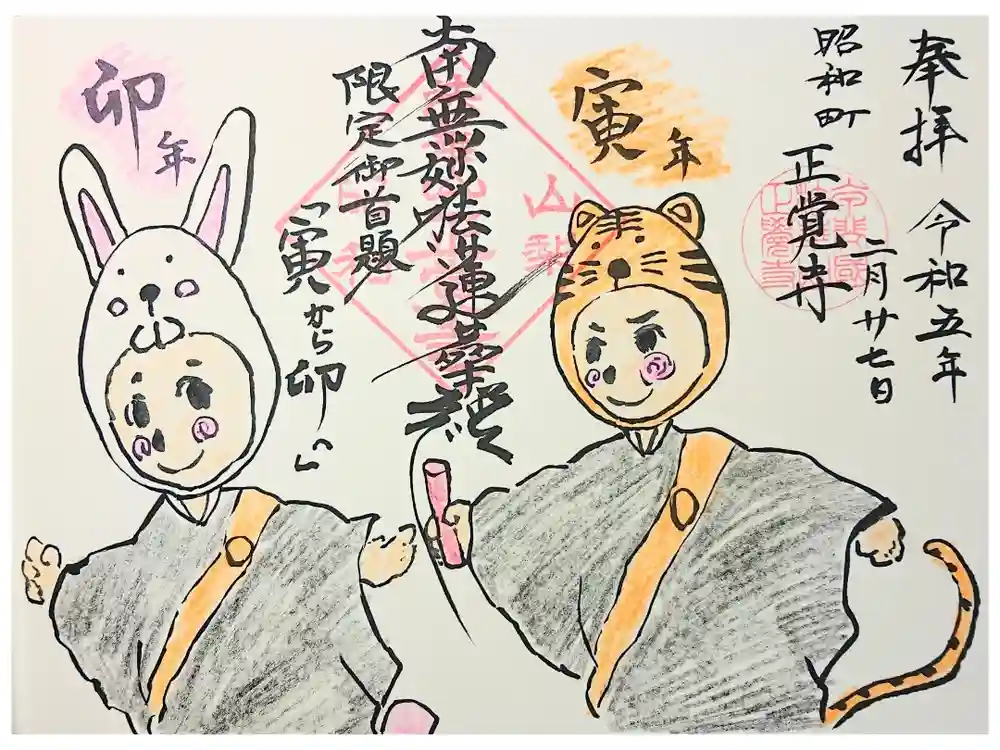 奉拝 令和五年
二月廿七日
昭和町
正覚寺
寅年
南無妙法蓮華経
限定御首題
「寅から卯へ」
卯年